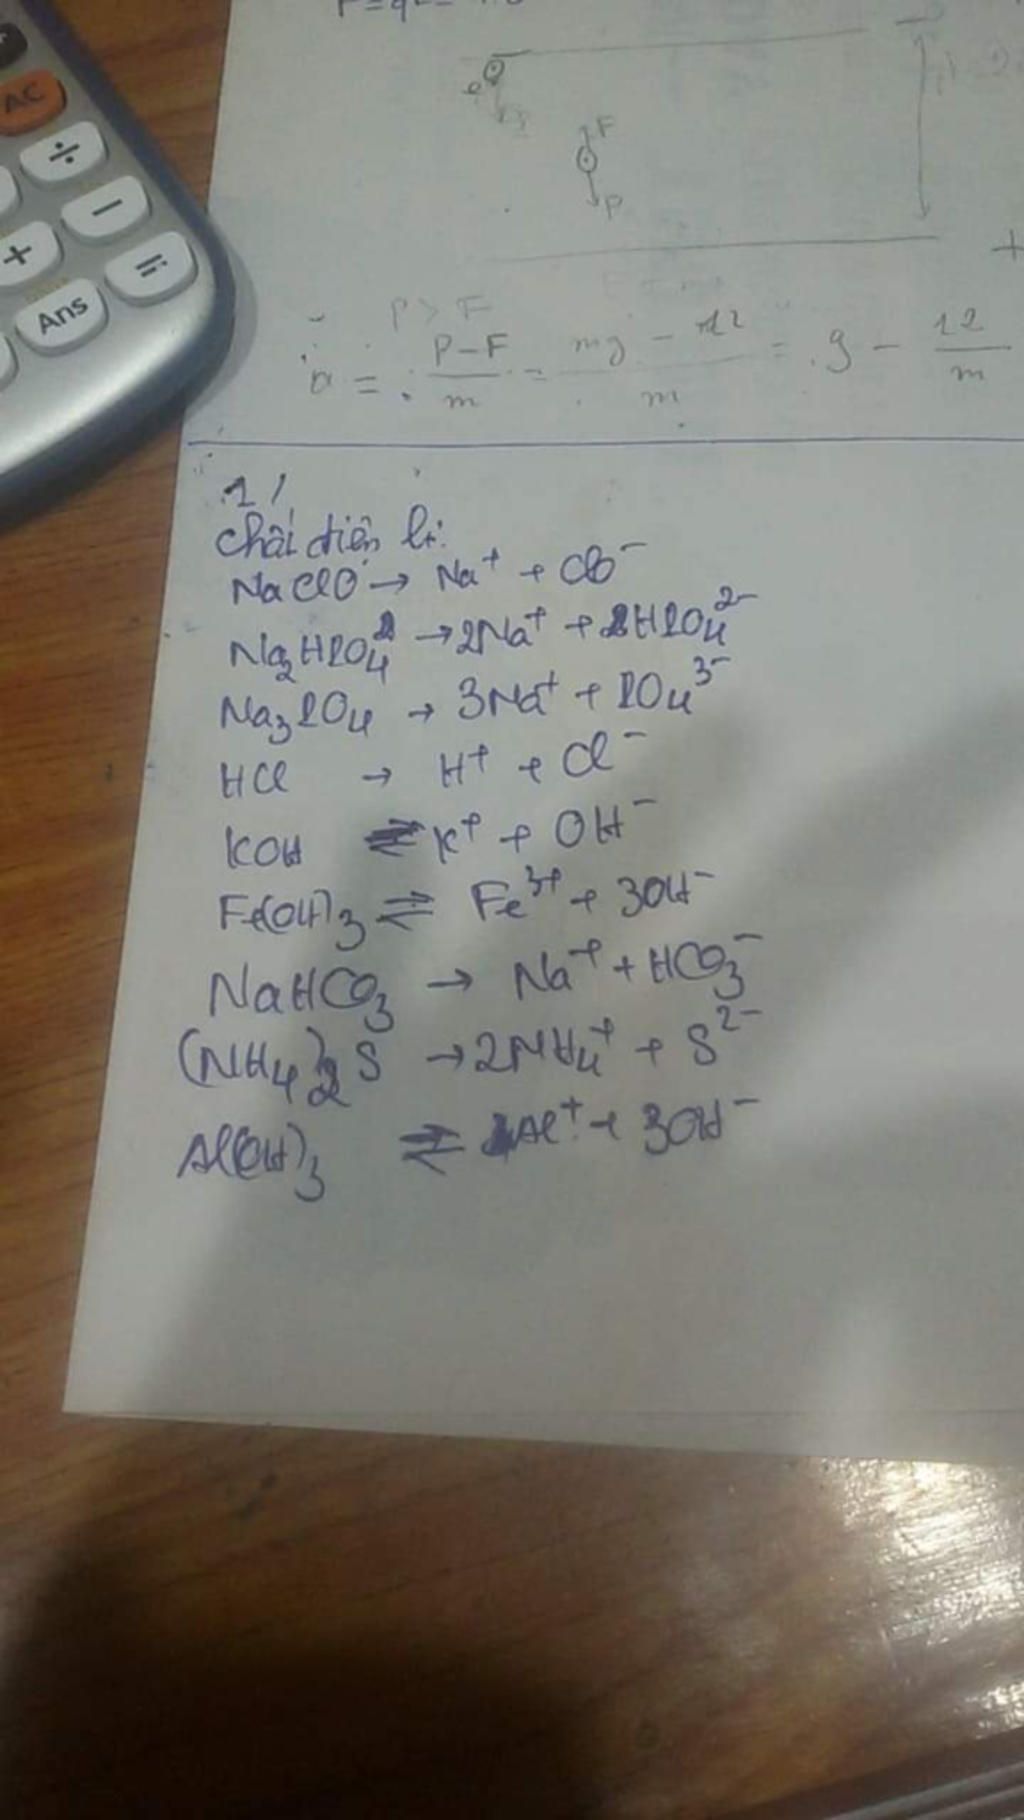 AC
÷
−
+
=
Ans
F
P
+
P > F
a = P−F/m = mg − 12/m = g − 12/m
1/
Chất điện li:
NaClO → Na⁺ + ClO⁻
Na₂HPO₄ → 2Na⁺ + HPO₄²⁻
Na₃PO₄ → 3Na⁺ + PO₄³⁻
HCl → H⁺ + Cl⁻
KOH ⇌ K⁺ + OH⁻
Fe(OH)₃ ⇌ Fe³⁺ + 3OH⁻
NaHCO₃ → Na⁺ + HCO₃⁻
(NH₄)₂S → 2NH₄⁺ + S²⁻
Al(OH)₃ ⇌ Al⁺ + 3OH⁻